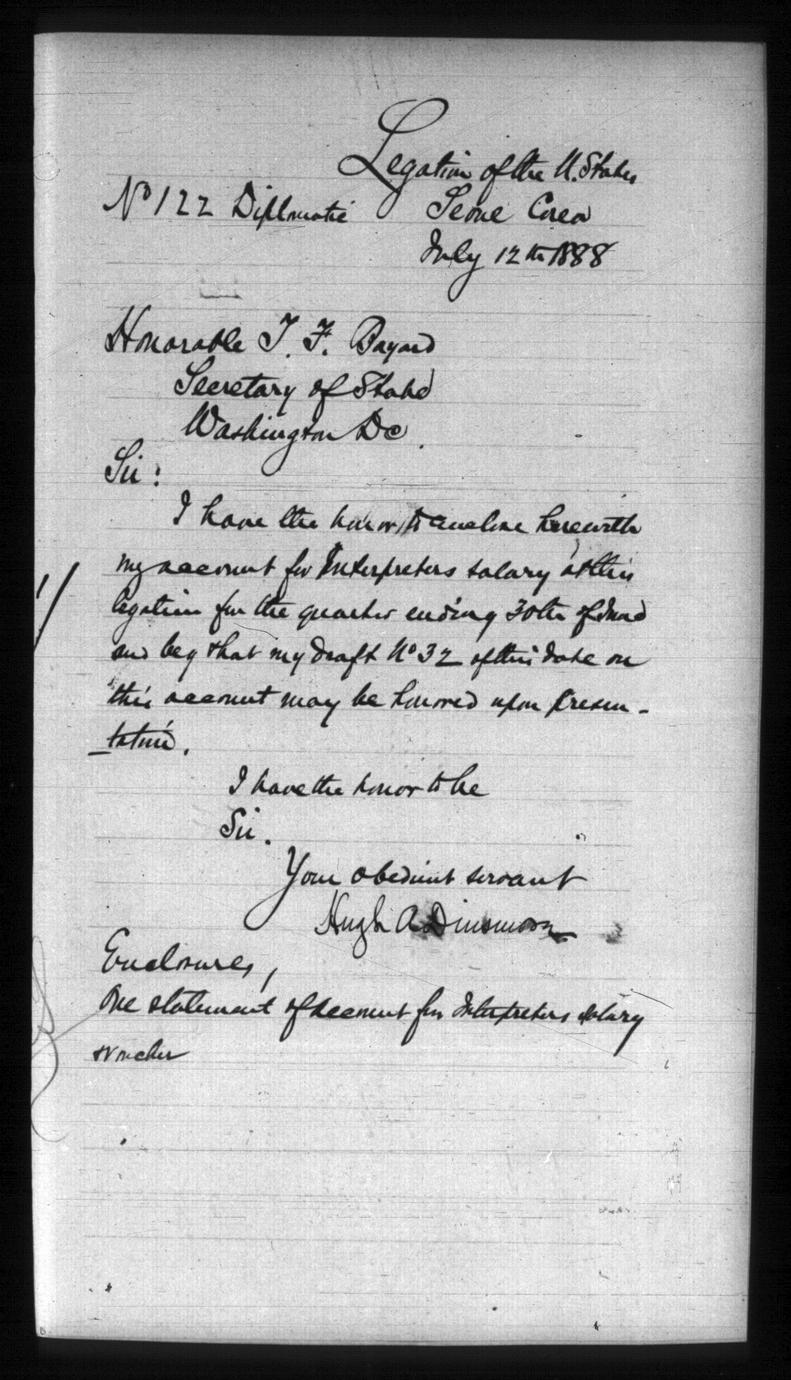 Legation of the U. States
No 122 Diplomatic Seoul Corea
July 12th 1888
Honorable T. F. Bayard
Secretary of State
Washington DC.
Sir:
I have the honor to enclose herewith
my account for Interpreters salary at this
legation for the quarter ending 30th of June
and beg that my draft No 32 of this date on
this account may be honored upon presen-
tation.
I have the honor to be
Sir.
Your obedient servant
Hugh A Dinsmore
Enclosures,
One statement of account for Interpreters salary
voucher